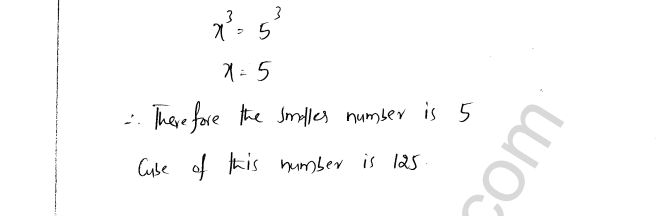 x³ = 5³
x = 5
∴ Therefore the smaller number is 5
Cube of this number is 125.
com